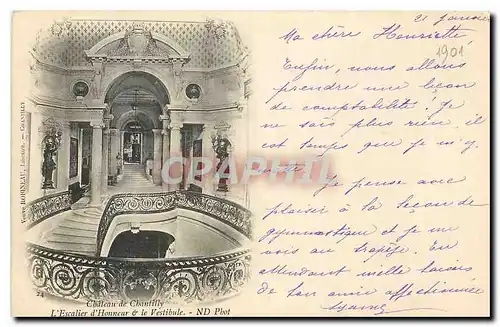 21 Janvier
1901
Ma chère Henriette
Enfin, nous allons
prendre une leçon
de comptabilité ! Je
ne sais plus rien, il
est temps que je m'y
mette. Je pense avec
plaisir à la leçon de
gymnastique et je me
vois au trapèze. En
attendant mille baisers
de ton amie affectionnée
Veuve BORNEAU, Libraire. - CHANTILLY
24
Château de Chantilly
L'Escalier d'Honneur & le Vestibule. - ND Phot